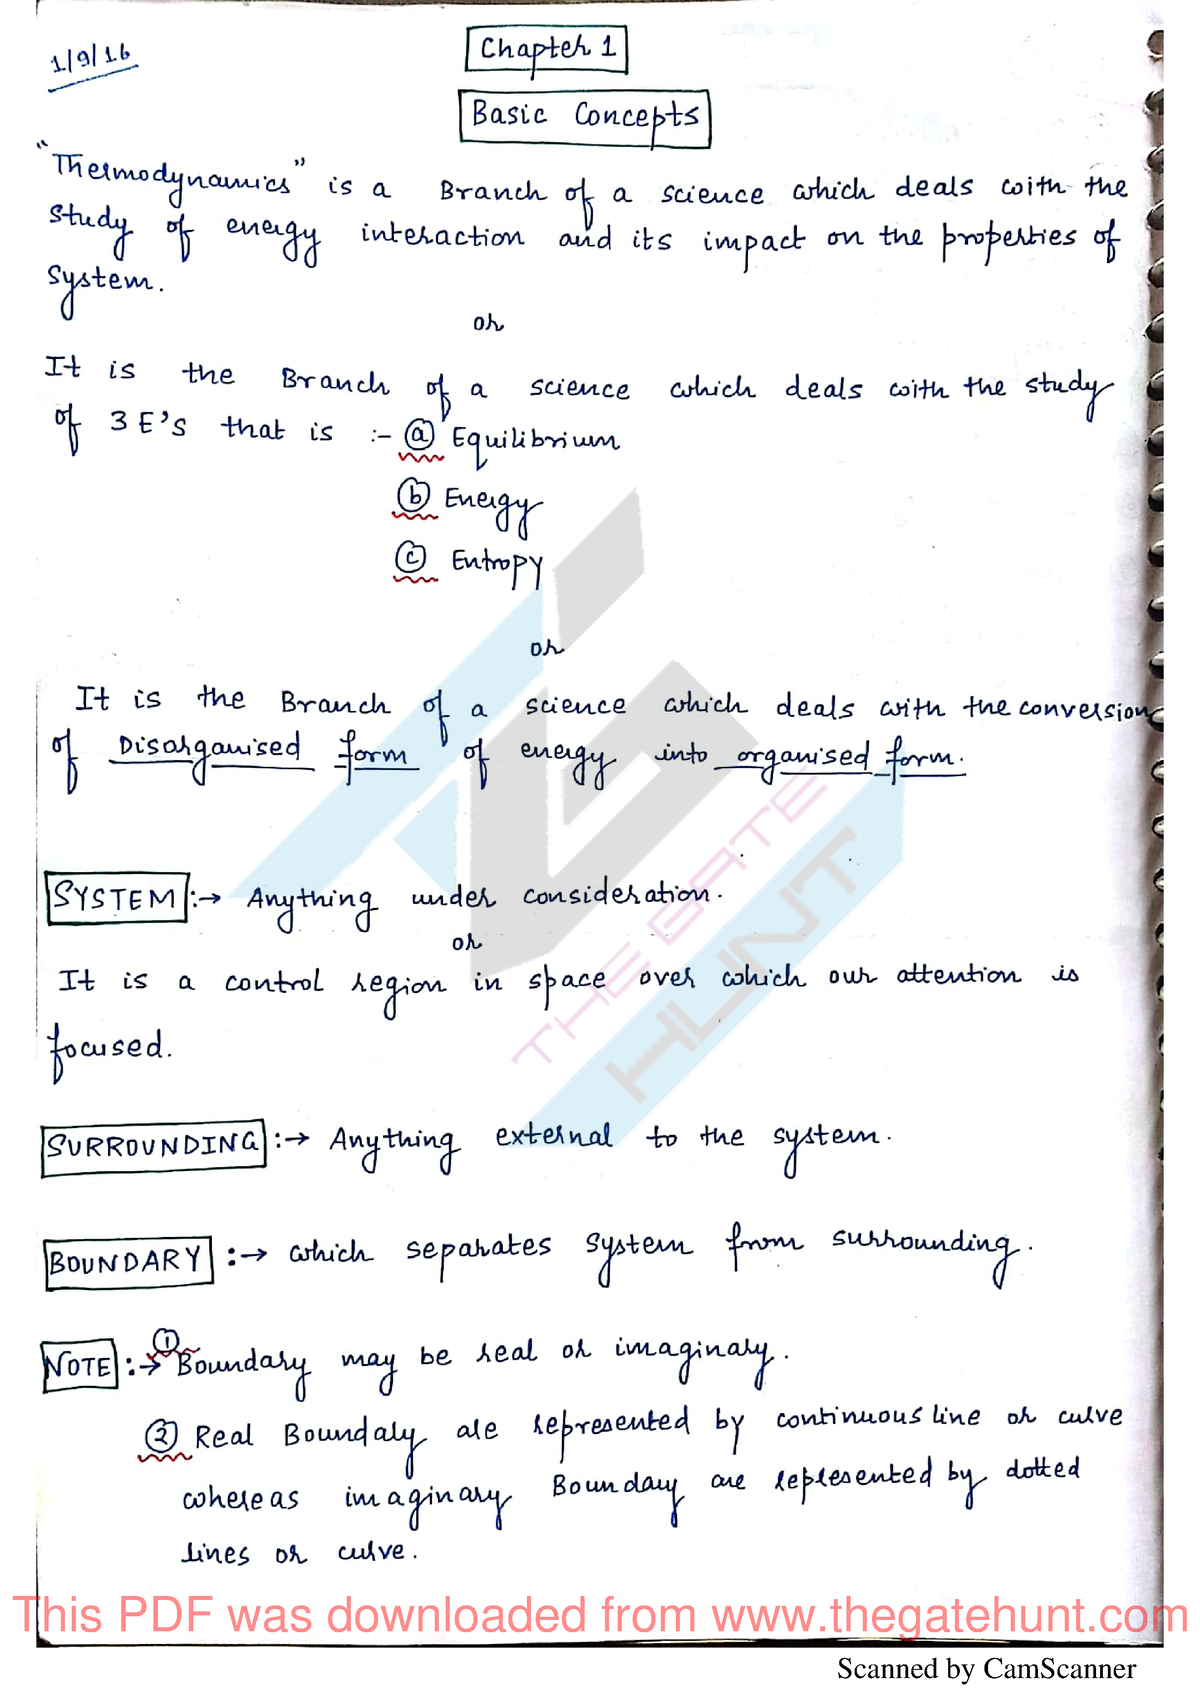 1/9/16
Chapter 1
Basic Concepts
"Thermodynamics" is a Branch of a science which deals with the
study of energy interaction and its impact on the properties of
system.
or
It is the Branch of a science which deals with the study
of 3 E's that is :- (a) Equilibrium
(b) Energy
(c) Entropy
or
It is the Branch of a science which deals with the conversion
of Disorganised form of energy into organised form.
SYSTEM :→ Anything under consideration.
or
It is a control region in space over which our attention is
focused.
SURROUNDING :→ Anything external to the system.
BOUNDARY :→ which separates system from surrounding.
NOTE :→ (1) Boundary may be real or imaginary.
(2) Real Boundary are represented by continuous line or curve
whereas imaginary Boundary are represented by dotted
lines or curve.
THE GATE
HUNT
This PDF was downloaded from www.thegatehunt.com
Scanned by CamScanner